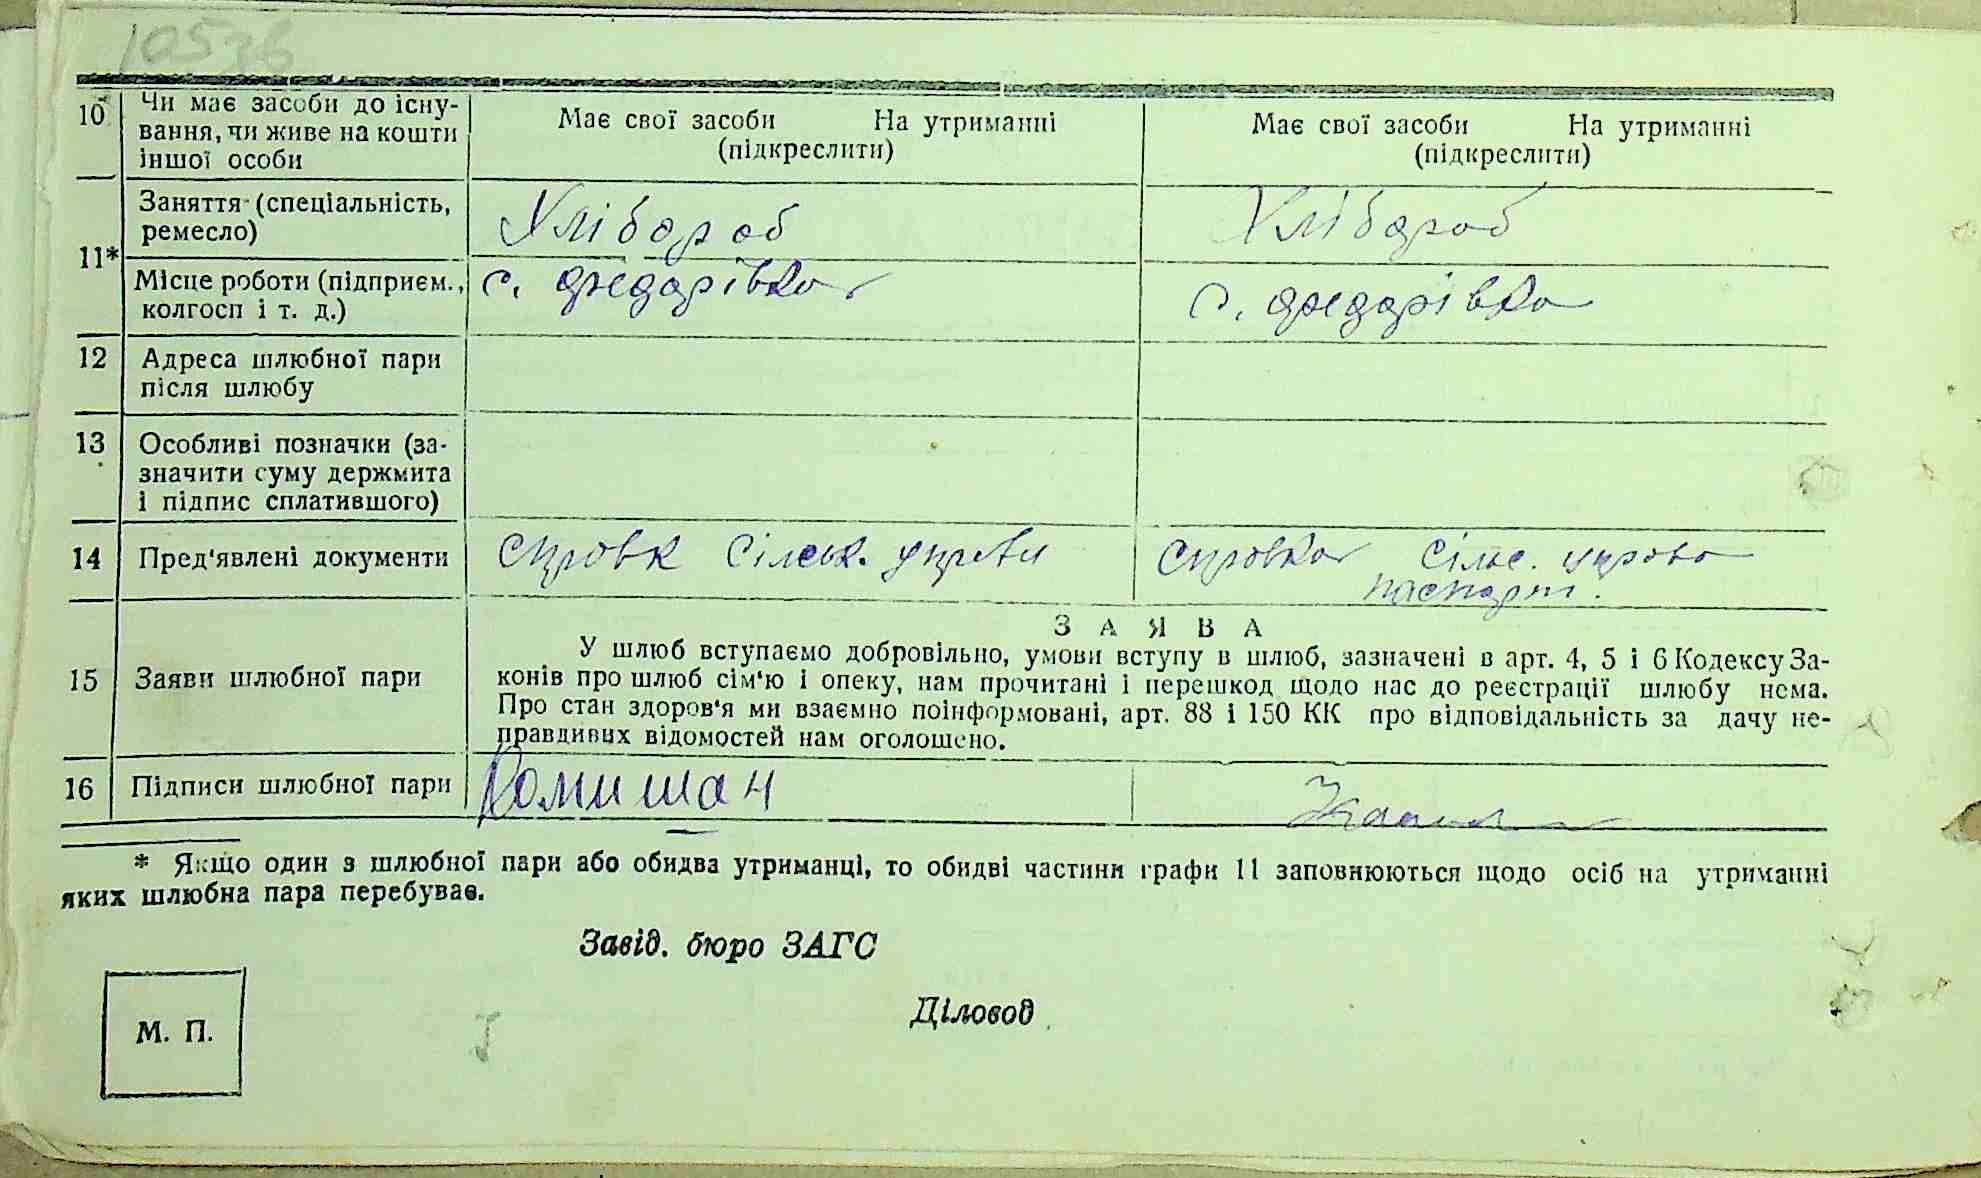 10536
10 Чи має засоби до існу-
вання, чи живе на кошти
іншої особи
Має свої засоби На утриманні
(підкреслити)
Має свої засоби На утриманні
(підкреслити)
11*
Заняття (спеціальність,
ремесло)
Хлібороб
Хлібороб
Місце роботи (підприєм.,
колгосп і т. д.)
с. Федорівка
с. Федорівка
12 Адреса шлюбної пари
після шлюбу
13 Особливі позначки (за-
значити суму держмита
і підпис сплатившого)
14 Пред'явлені документи
справк Сільськ. управи
справка Сільс. управа
паспорт.
15 Заяви шлюбної пари
ЗАЯВА
У шлюб вступаємо добровільно, умови вступу в шлюб, зазначені в арт. 4, 5 і 6 Кодексу За-
конів про шлюб сім'ю і опеку, нам прочитані і перешкод щодо нас до реєстрації шлюбу нема.
Про стан здоров'я ми взаємно поінформовані, арт. 88 і 150 КК про відповідальність за дачу не-
правдивих відомостей нам оголошено.
16 Підписи шлюбної пари
Ромишан
* Якщо один з шлюбної пари або обидва утриманці, то обидві частини графи 11 заповнюються щодо осіб на утриманні
яких шлюбна пара перебуває.
Завід. бюро ЗАГС
Діловод
М. П.